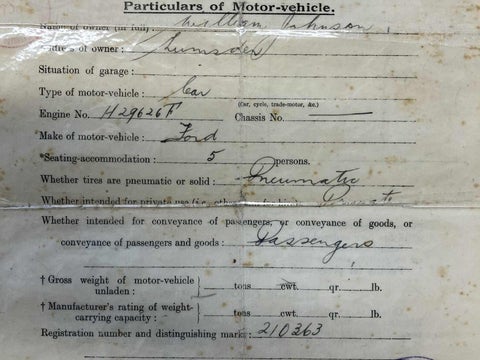 Particulars of Motor-vehicle.
Name of owner (in full): William Johnson
Address of owner: Lumsden
Situation of garage:
Type of motor-vehicle: Car
(Car, cycle, trade-motor, &c.)
Engine No. H29626F Chassis No. —
Make of motor-vehicle: Ford
*Seating-accommodation: 5 persons.
Whether tires are pneumatic or solid: Pneumatic
Whether intended for private use Private
Whether intended for conveyance of passengers, or conveyance of goods, or
conveyance of passengers and goods: Passengers
† Gross weight of motor-vehicle
unladen: tons cwt. qr. lb.
† Manufacturer's rating of weight-
carrying capacity: tons cwt. qr. lb.
Registration number and distinguishing mark: 210363